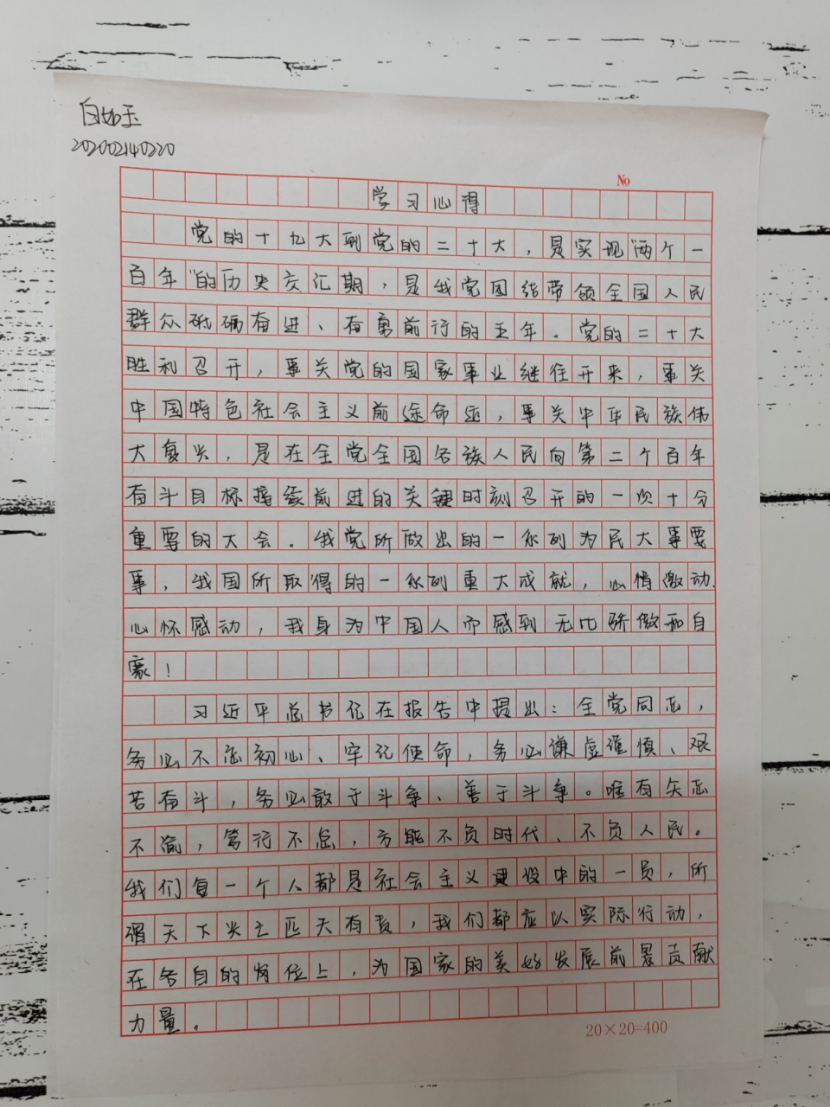 白如玉
202002140220
No
学习心得
党的十九大到党的二十大,是实现“两个一
百年”的历史交汇期,是我党团结带领全国人民
群众砥砺奋进、奋勇前行的五年。党的二十大
胜利召开,事关党的国家事业继往开来,事关
中国特色社会主义前途命运,事关中华民族伟
大复兴,是在全党全国各族人民向第二个百年
奋斗目标接续前进的关键时刻召开的一次十分
重要的大会。我党所做出的一系列为民大事要
事,我国所取得的一系列重大成就,心情激动、
心怀感动,我身为中国人而感到无比骄傲和自
豪!
习近平总书记在报告中提出:全党同志,
务必不忘初心、牢记使命,务必谦虚谨慎、艰
苦奋斗,务必敢于斗争、善于斗争。唯有矢志
不渝,笃行不怠,方能不负时代、不负人民。
我们每一个人都是社会主义建设中的一员,所
谓天下兴亡匹夫有责,我们都应以实际行动,
在各自的岗位上,为国家的美好发展前景贡献
力量。
20×20=400